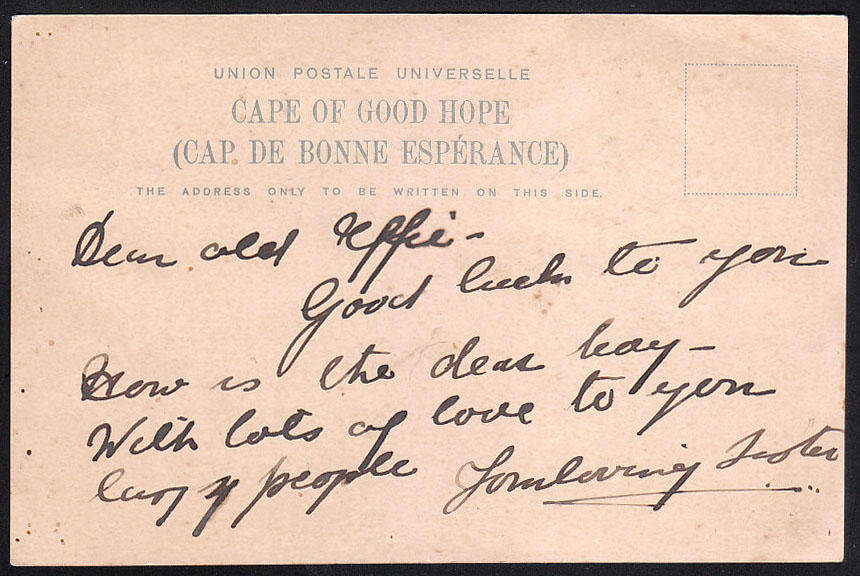 UNION POSTALE UNIVERSELLE
CAPE OF GOOD HOPE
(CAP. DE BONNE ESPÉRANCE)
THE ADDRESS ONLY TO BE WRITTEN ON THIS SIDE.
Dear old Effie -
Good luck to you
How is the dear boy -
With lots of love to you
lazy people Your loving Sister